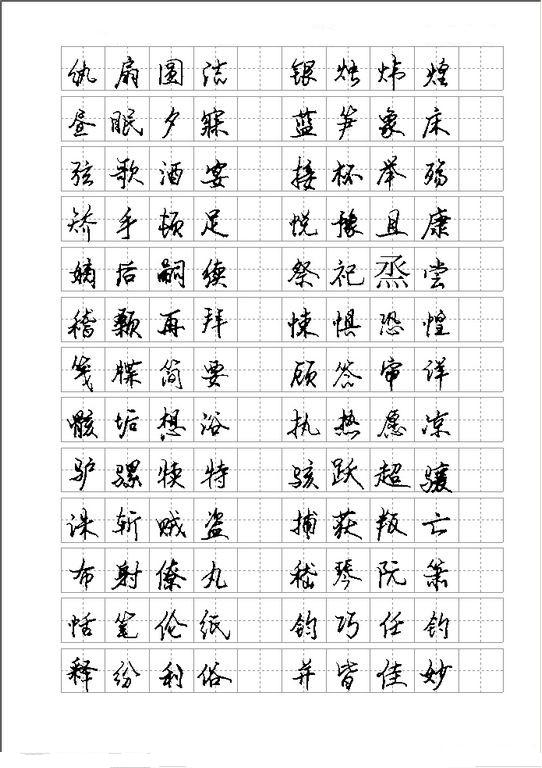 纨扇圆洁 银烛炜煌
昼眠夕寐 蓝笋象床
弦歌酒宴 接杯举殇
矫手顿足 悦豫且康
嫡后嗣续 祭祀烝尝
稽颡再拜 悚惧恐惶
笺牒简要 顾答审详
骸垢想浴 执热愿凉
驴骡犊特 骇跃超骧
诛斩贼盗 捕获叛亡
布射僚丸 嵇琴阮箫
恬笔伦纸 钧巧任钓
释纷利俗 并皆佳妙